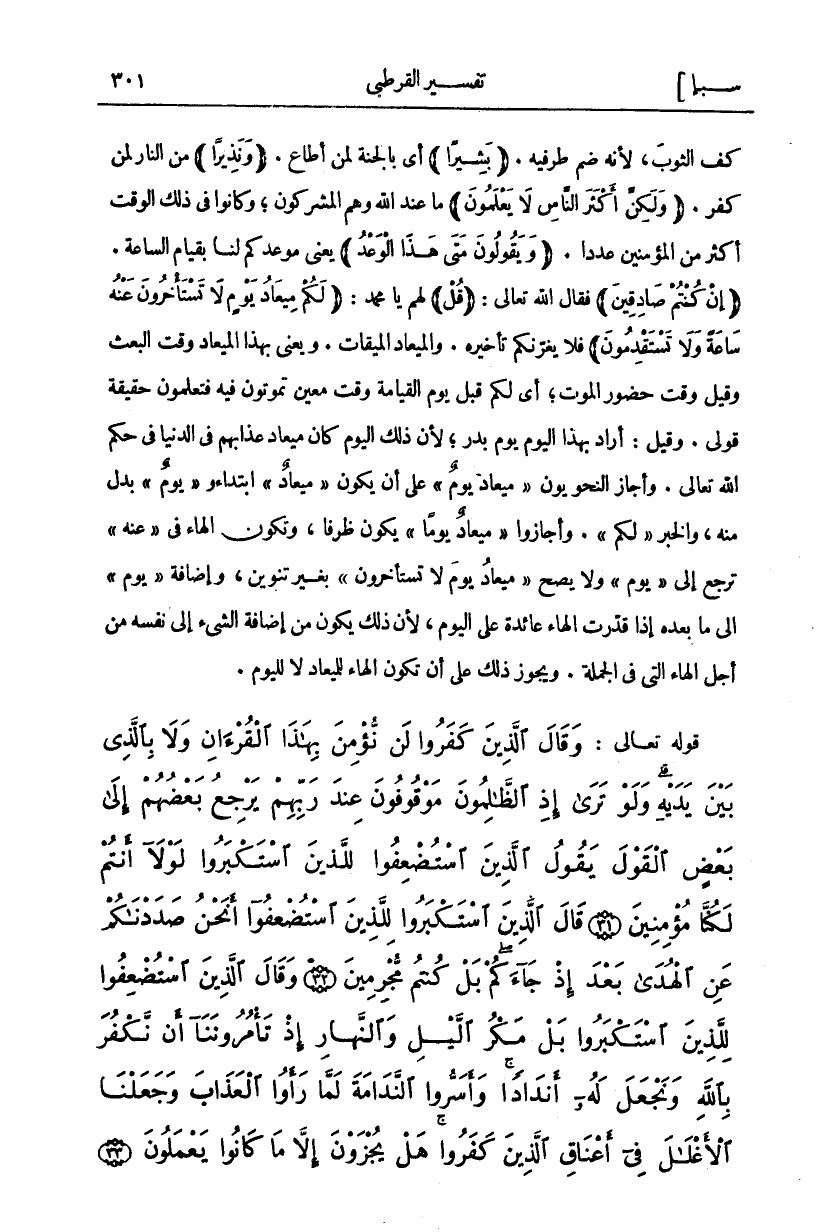 سبإ] تفسير القرطبى ٣٠١
كف الثوبَ، لأنه ضم طرفيه . ﴿ بَشِيرًا ﴾ أى بالجنة لمن أطاع . ﴿ وَنَذِيرًا ﴾ من النار لمن
كفر . ﴿ وَلَكِنَّ أَكْثَرَ النَّاسِ لَا يَعْلَمُونَ ﴾ ما عند الله وهم المشركون ؛ وكانوا فى ذلك الوقت
أكثر من المؤمنين عددا . ﴿ وَيَقُولُونَ مَتَى هَـذَا الْوَعْدُ ﴾ يعنى موعدكم لنا بقيام الساعة .
﴿ إِنْ كُنْتُمْ صَادِقِينَ ﴾ فقال الله تعالى : ﴿ قُلْ ﴾ لهم يا محمد : ﴿ لَكُمْ مِيعَادُ يَوْمٍ لَا تَسْتَأْخِرُونَ عَنْهُ
سَاعَةً وَلَا تَسْتَقْدِمُونَ ﴾ فلا يغرّنكم تأخيره . والميعاد الميقات . ويعنى بهذا الميعاد وقت البعث
وقيل وقت حضور الموت ؛ أى لكم قبل يوم القيامة وقت معين تموتون فيه فتعلمون حقيقة
قولى . وقيل : أراد بهذا اليوم يوم بدر ؛ لأن ذلك اليوم كان ميعاد عذابهم فى الدنيا فى حكم
الله تعالى . وأجاز النحويون « ميعادٌ يومٌ » على أن يكون « ميعادٌ » ابتداء و « يومٌ » بدل
منه ، والخبر « لكم » . وأجازوا « ميعادٌ يومًا » يكون ظرفا ، وتكون الهاء فى « عنه »
ترجع إلى « يوم » ولا يصح « ميعادُ يومَ لا تستأخرون » بغير تنوين ، وإضافة « يوم »
الى ما بعده إذا قدّرت الهاء عائدة على اليوم ، لأن ذلك يكون من إضافة الشىء إلى نفسه من
أجل الهاء التى فى الجملة . ويجوز ذلك على أن تكون الهاء للميعاد لا لليوم .
قوله تعالى : وَقَالَ ٱلَّذِينَ كَفَرُوا لَن نُّؤْمِنَ بِهَٰذَا ٱلْقُرْءَانِ وَلَا بِٱلَّذِى
بَيْنَ يَدَيْهِ ۗ وَلَوْ تَرَىٰ إِذِ ٱلظَّٰلِمُونَ مَوْقُوفُونَ عِندَ رَبِّهِمْ يَرْجِعُ بَعْضُهُمْ إِلَىٰ
بَعْضٍ ٱلْقَوْلَ يَقُولُ ٱلَّذِينَ ٱسْتُضْعِفُوا لِلَّذِينَ ٱسْتَكْبَرُوا لَوْلَآ أَنتُمْ
لَكُنَّا مُؤْمِنِينَ ٣١ قَالَ ٱلَّذِينَ ٱسْتَكْبَرُوا لِلَّذِينَ ٱسْتُضْعِفُوٓا أَنَحْنُ صَدَدْنَٰكُمْ
عَنِ ٱلْهُدَىٰ بَعْدَ إِذْ جَآءَكُم ۖ بَلْ كُنتُم مُّجْرِمِينَ ٣٢ وَقَالَ ٱلَّذِينَ ٱسْتُضْعِفُوا
لِلَّذِينَ ٱسْتَكْبَرُوا بَلْ مَكْرُ ٱلَّيْلِ وَٱلنَّهَارِ إِذْ تَأْمُرُونَنَآ أَن نَّكْفُرَ
بِٱللَّهِ وَنَجْعَلَ لَهُۥٓ أَندَادًا ۚ وَأَسَرُّوا ٱلنَّدَامَةَ لَمَّا رَأَوُا ٱلْعَذَابَ وَجَعَلْنَا
ٱلْأَغْلَٰلَ فِىٓ أَعْنَاقِ ٱلَّذِينَ كَفَرُوا ۚ هَلْ يُجْزَوْنَ إِلَّا مَا كَانُوا يَعْمَلُونَ ٣٣